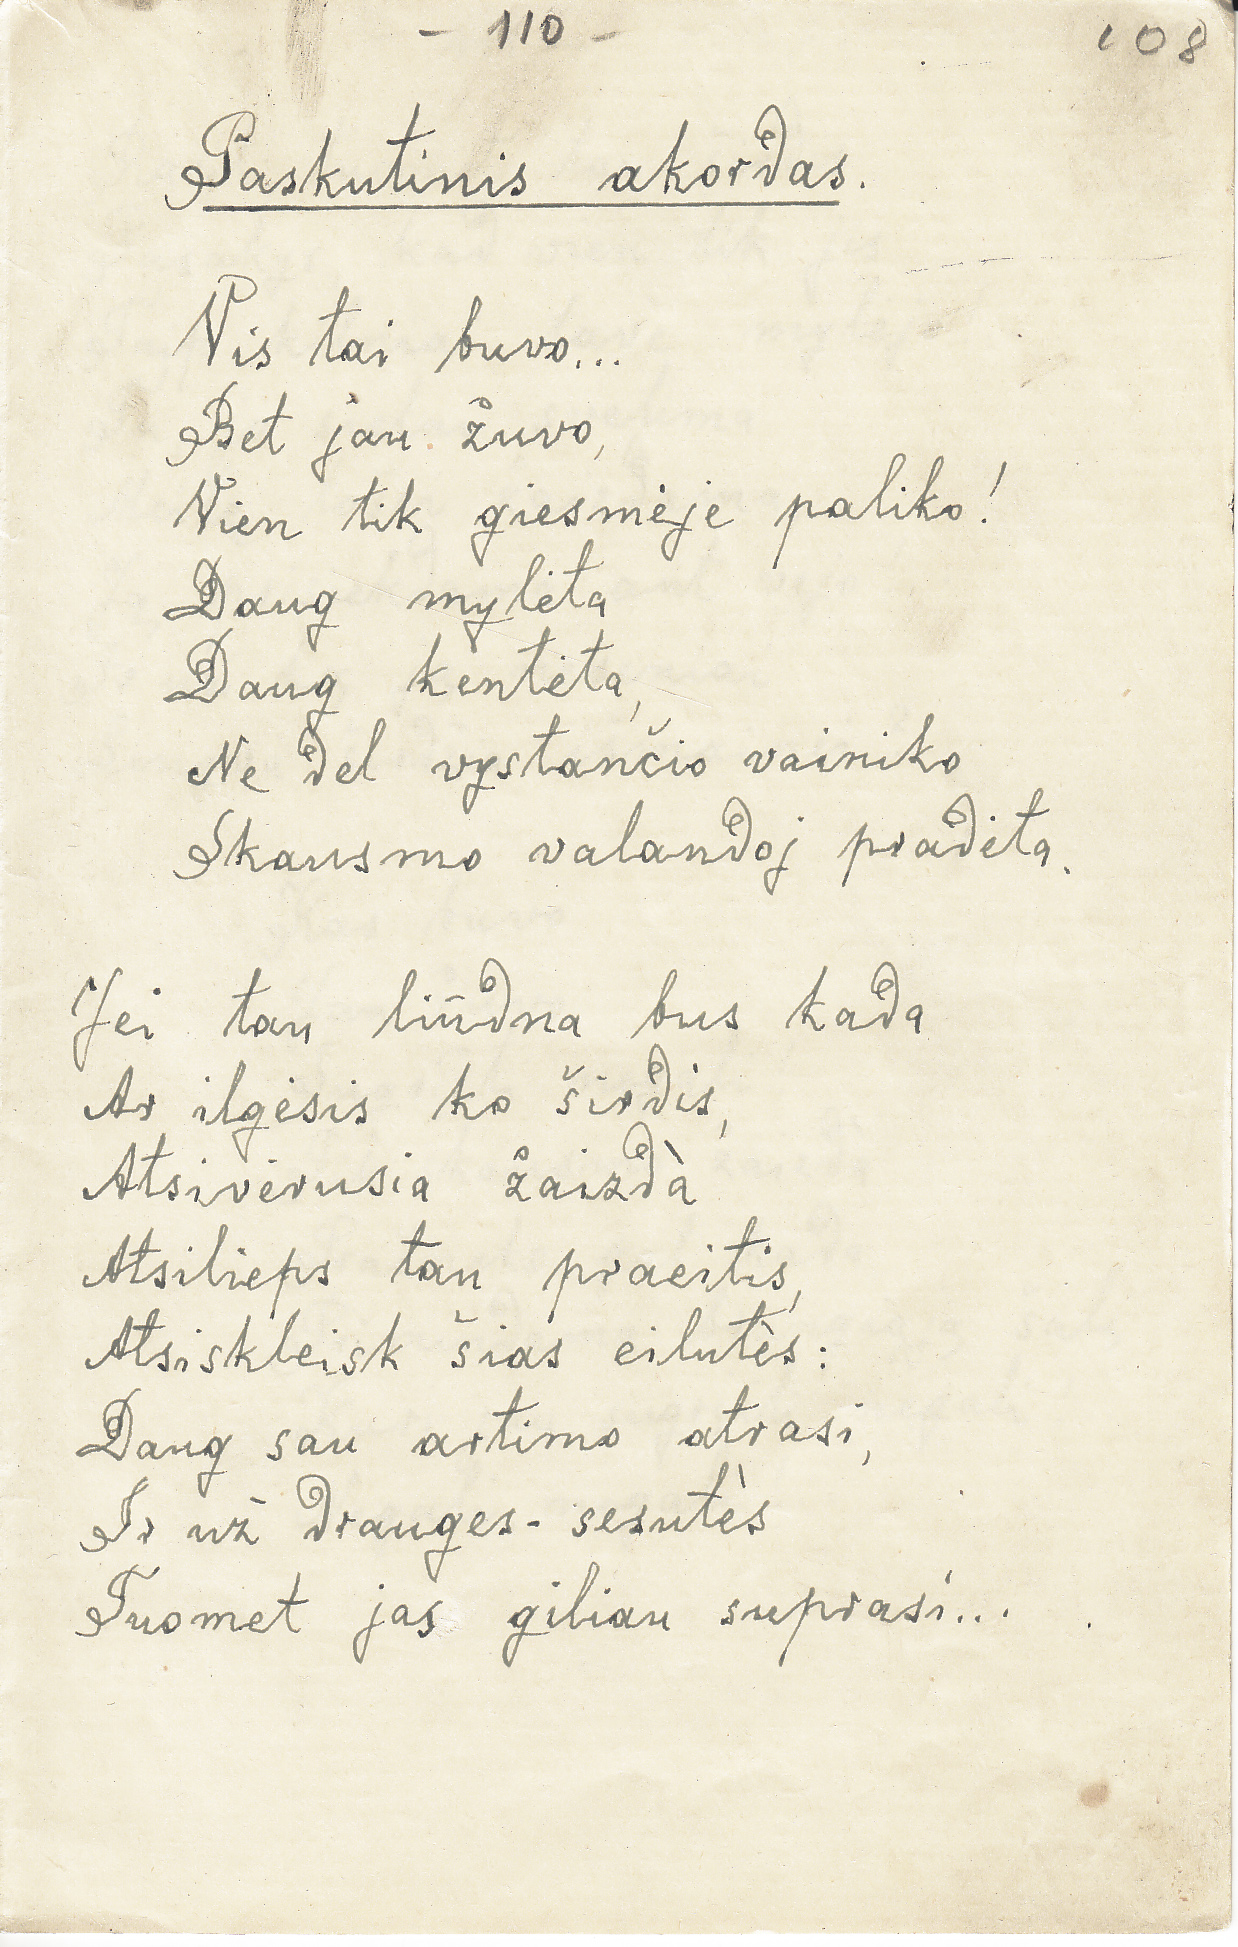 - 110 -
108
Paskutinis akordas.
Vis tai buvo...
Bet jau žuvo,
Vien tik giesmėje paliko!
Daug mylėta
Daug kentėta,
Ne del vystančio vainiko
Skausmo valandoj pradėta.
Jei tau liūdna bus kada
Ar ilgėsis ko širdis,
Atsivėrusia žaizdà
Atsilieps tau praeitis,
Atsiskleisk šias eilutės:
Daug sau artimo atrasi,
Ir už drauges- sesutės
Tuomet jas giliau suprasi...